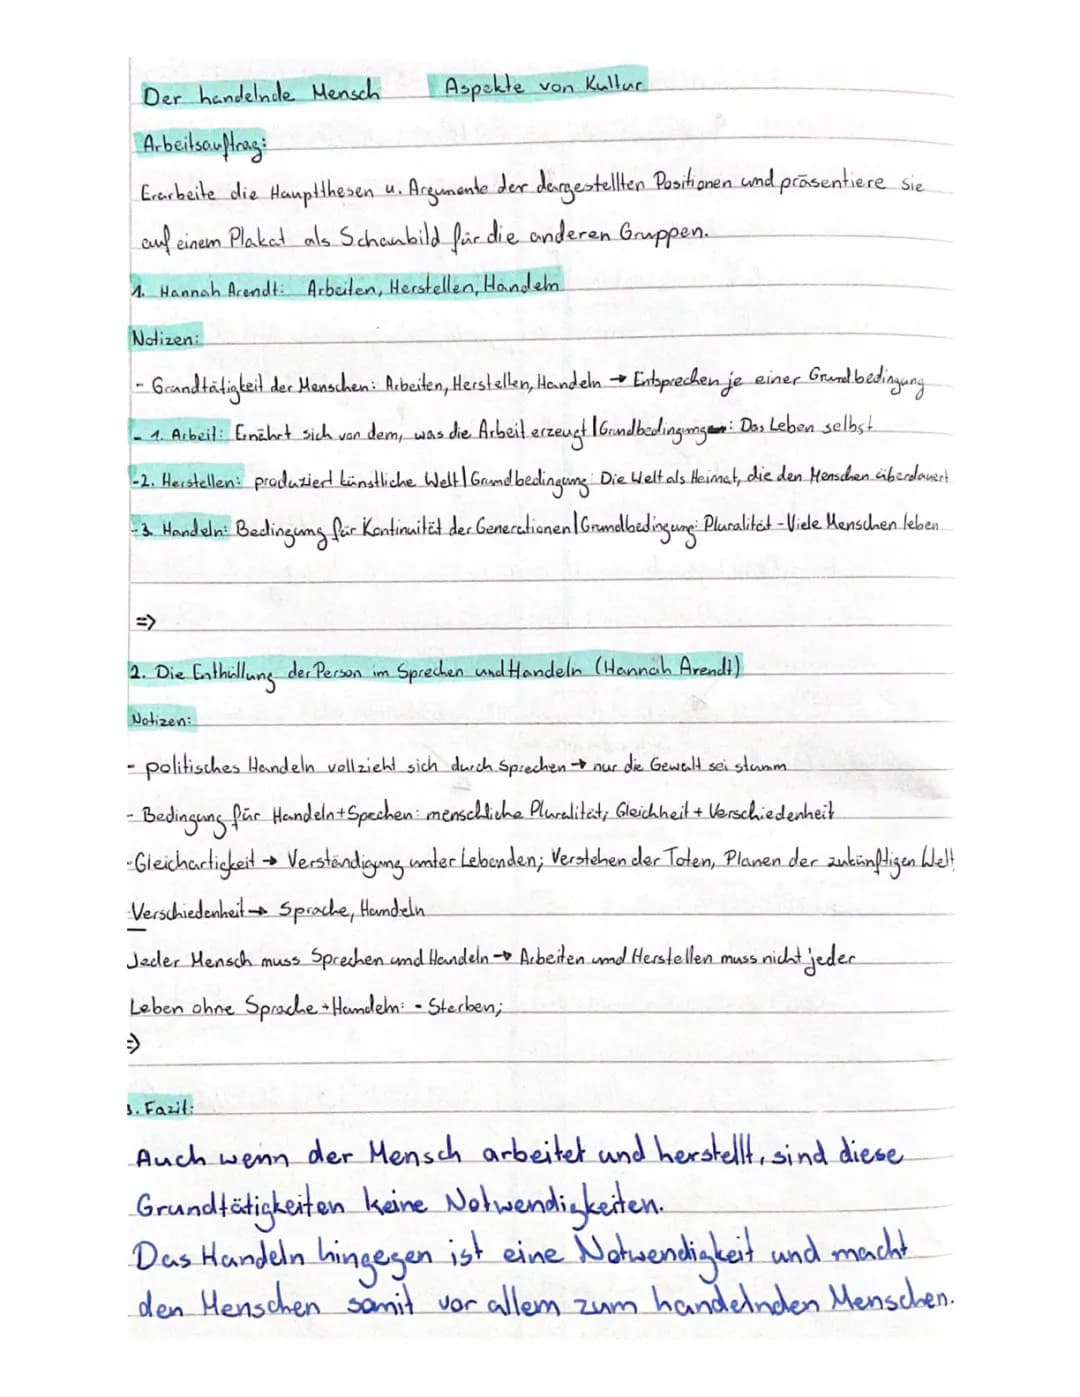 Der handelnde Mensch Aspekte von Kultur
Arbeitsauftrag:
Erarbeite die Hauptthesen u. Argumente der dargestellten Positionen und präsentiere sie
auf einem Plakat als Schaubild für die anderen Gruppen.
1. Hannah Arendt: Arbeiten, Herstellen, Handeln
Notizen:
- Grundtätigkeit der Menschen: Arbeiten, Herstellen, Handeln → Entsprechen je einer Grundbedingung
- 1. Arbeit: Ernährt sich von dem, was die Arbeit erzeugt | Grundbedingung: Das Leben selbst
- 2. Herstellen: produziert künstliche Welt | Grundbedingung: Die Welt als Heimat, die den Menschen überdauert
- 3. Handeln: Bedingung für Kontinuität der Generationen | Grundbedingung: Pluralität - Viele Menschen leben
=>
2. Die Enthüllung der Person im Sprechen und Handeln (Hannah Arendt)
Notizen:
- politisches Handeln vollzieht sich durch Sprechen → nur die Gewalt sei stumm
- Bedingung für Handeln + Spechen: menschliche Pluralität; Gleichheit + Verschiedenheit
- Gleichartigkeit → Verständigung unter Lebenden; Verstehen der Toten, Planen der zukünftigen Welt
Verschiedenheit → Sprache, Handeln
Jeder Mensch muss Sprechen und Handeln → Arbeiten und Herstellen muss nicht jeder
Leben ohne Sprache + Handeln: - Sterben;
=>
3. Fazit:
Auch wenn der Mensch arbeitet und herstellt, sind diese
Grundtätigkeiten keine Notwendigkeiten.
Das Handeln hingegen ist eine Notwendigkeit und macht
den Menschen somit vor allem zum handelnden Menschen.